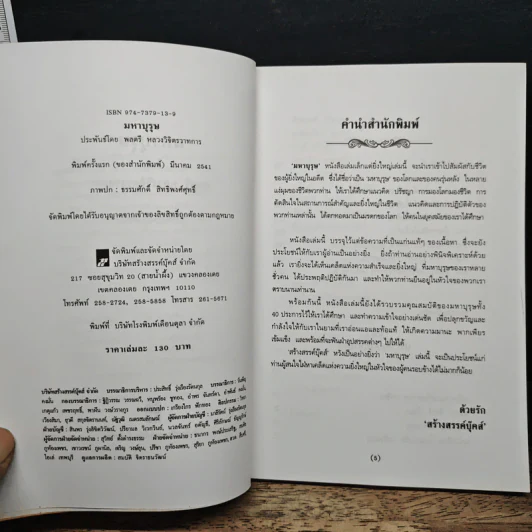 ISBN 974-7379-13-9
มหาบุรุษ
ประพันธ์โดย พลตรี หลวงวิจิตรวาทการ
พิมพ์ครั้งแรก (ของสำนักพิมพ์) มีนาคม 2541
ภาพปก : ธรรมศักดิ์ สิทธิพงศ์สุทธิ์
จัดพิมพ์โดยได้รับอนุญาตจากเจ้าของลิขสิทธิ์ถูกต้องตามกฎหมาย
จัดพิมพ์และจัดจำหน่ายโดย
บริษัทสร้างสรรค์บุ๊คส์ จำกัด
217 ซอยสุขุมวิท 20 (สายน้ำผึ้ง) แขวงคลองเตย
เขตคลองเตย กรุงเทพฯ 10110
โทรศัพท์ 258-2724, 258-5858 โทรสาร 261-5671
พิมพ์ที่ บริษัทโรงพิมพ์เดือนตุลา จำกัด
ราคาเล่มละ 130 บาท
บริษัทสร้างสรรค์บุ๊คส์ จำกัด บรรณาธิการบริหาร : ประสิทธิ์ รุ่งเรืองรัตนกุล
คำนำสำนักพิมพ์
'มหาบุรุษ' หนังสือเล่มเล็กแต่ยิ่งใหญ่เล่มนี้ จะนำเราเข้าไปสัมผัสกับชีวิต
ของผู้ยิ่งใหญ่ในอดีต ซึ่งได้ชื่อว่าเป็น มหาบุรุษ ของโลกและของคนรุ่นหลัง ในหลาย
แง่มุมของชีวิตพวกท่าน ให้เราได้ศึกษาแนวคิด ปรัชญา การมองโลกมองชีวิต การ
ตัดสินใจในสถานการณ์สำคัญและยิ่งใหญ่ในชีวิต แนวคิดและการปฏิบัติตัวของ
พวกท่านเหล่านั้น ได้ตกทอดมาเป็นมรดกของโลก ให้คนในยุคสมัยของเราได้ศึกษา
หนังสือเล่มนี้ บรรจุไว้แต่ข้อความที่เป็นแก่นแท้ๆ ของเนื้อหา ซึ่งจะยัง
ประโยชน์ให้กับเราผู้อ่านเป็นอย่างยิ่ง ยิ่งถ้าท่านอ่านอย่างพินิจพิเคราะห์ด้วย
แล้ว เราก็จะได้เห็นเคล็ดแห่งความสำเร็จและยิ่งใหญ่ ที่มหาบุรุษของเราหลาย
ชั่วคน ได้ประพฤติปฏิบัติกันมา และทำให้พวกท่านยืนอยู่ในหัวใจของพวกเรา
ตราบนานเท่านาน
พร้อมกันนี้ หนังสือเล่มนี้ยังได้รวบรวมคุณสมบัติของมหาบุรุษทั้ง
40 ประการไว้ให้เราได้ศึกษา และทำความเข้าใจอย่างเด่นชัด เพื่อปลุกขวัญและ
กำลังใจให้กับเราในยามที่เราอ่อนแอและท้อแท้ ให้เกิดความมานะ พากเพียร
เข้มแข็ง และพร้อมที่จะฟันฝ่าอุปสรรคต่างๆ ไปให้ได้
'สร้างสรรค์บุ๊คส์' หวังเป็นอย่างยิ่งว่า มหาบุรุษ เล่มนี้ จะเป็นประโยชน์แก่
ท่านผู้สนใจใฝ่หาเคล็ดแห่งความยิ่งใหญ่ในหัวใจของผู้คนรอบข้างได้ไม่มากก็น้อย
ด้วยรัก
'สร้างสรรค์บุ๊คส์'
(5)